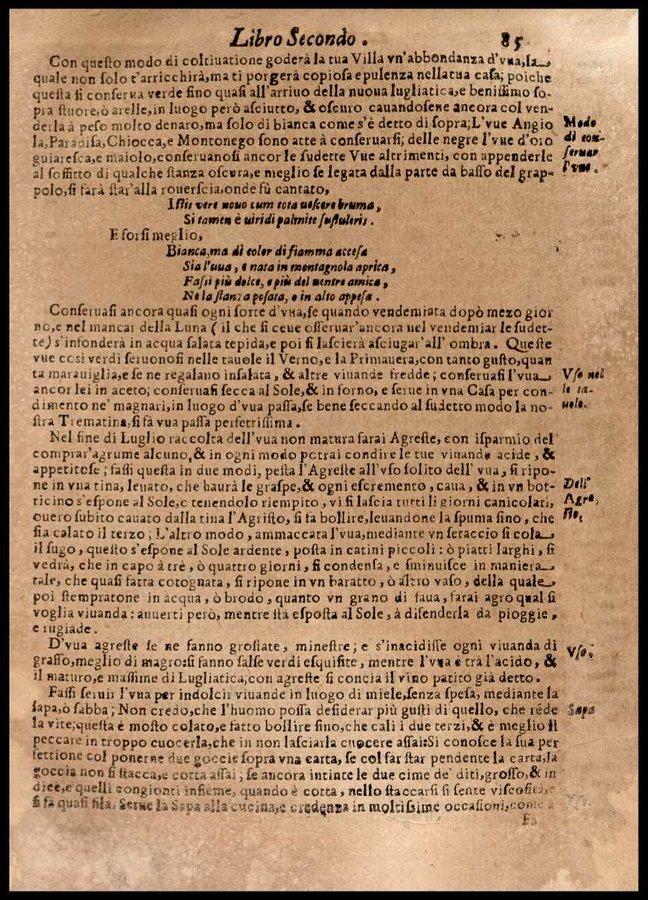 Libro Secondo. 85
Con questo modo di coltiuatione goderà la tua Villa vn'abbondanza d'vua, la
quale non solo t'arricchirà, ma ti porgerà copiosa epulenza nella tua casa; poiche
questa si conserua verde fino quasi all'arriuo della nuoua lugliatica, e benissimo so-
pra stuore, ò arelle, in luogo però asciutto, & oscuro cauandosene ancora col ven-
derla à peso molto denaro, ma solo di bianca come s'è detto di sopra; L'vue Angio
la, Paradisa, Chiocca, e Montonego sono atte à conseruarsi; delle negre l'vue d'oro
guiaresca, e maiolo, conseruanosi ancor le sudette Vue altrimenti, con appenderle
al soffitto di qualche stanza oscura, e meglio se legata dalla parte da basso del grap-
polo, si farà star'alla rouerscia, onde fù cantato,
Modo
di con-
seruar
l'vue.
Istis vere nouo cum tota uescere bruma,
Si tamen è uiridi palmite sustuleris.
E forsi meglio,
Bianca, ma di color di fiamma accesa
Sia l'uua, e nata in montagnola aprica,
Fassi più dolce, e più del uentre amica,
Ne la stanza posata, e in alto appesa.
Conseruasi ancora quasi ogni sorte d'vua, se quando vendemiata dopò mezo gior
no, e nel mancar della Luna ( il che si deue osseruar'ancora nel vendemiar le sudet-
te) s'infonderà in acqua salata tepida, e poi si lascierà asciugar'all' ombra. Queste
vue così verdi seruonosi nelle tauole il Verno, e la Primauera, con tanto gusto, quan
ta marauiglia, e se ne regalano insalata, & altre viuande fredde; conseruasi l'vua
ancor lei in aceto; conseruasi secca al Sole, & in forno, e serue in vna Casa per con-
dimento ne' magnari, in luogo d'vua passa, se bene seccando al sudetto modo la no-
stra Trematina, si fà vua passa perfettissima.
Vso nel
le ta-
uole.
Nel fine di Luglio raccolta dell'vua non matura farai Agreste, con isparmio del
comprar'agrume alcuno, & in ogni modo potrai condire le tue viuande acide, &
appetitose; fassi questa in due modi, pesta l'Agreste all'vso solito dell' vua, si ripo-
ne in vna tina, leuato, che haurà le graspe, & ogni escremento, caua, & in vn bot-
ticino s'espone al Sole, e tenendolo riempito, vi si lascia tutti li giorni canicolari,
ouero subito cauato dalla tina l'Agristo, si fà bollire, leuandone la spuma fino, che
sia calato il terzo; L'altro modo, ammaccata l'vua, mediante vn setaccio si cola
il sugo, questo s'espone al Sole ardente, posta in catini piccoli: ò piatti larghi, si
vedrà, che in capo à trè, ò quattro giorni, si condensa, e sminuisce in maniera
tale, che quasi fatta cotognata, si ripone in vn baratto, ò altro vaso, della quale
poi stempratone in acqua, ò brodo, quanto vn grano di faua, farai agro qual si
voglia viuanda: auuerti però, mentre stà esposta al Sole, à difenderla da pioggie,
e rugiade.
Dell'
Agre,
sto,
D'vua agreste se ne fanno grostate, minestre; e s'inacidisse ogni viuanda di
grasso, meglio di magro: si fanno salse verdi esquisite, mentre l'vua è trà l'acido, &
il maturo, e massime di Lugliatica; con agreste si concia il vino patito già detto.
Vso.
Fassi seruir l'vua per indolcir viuande in luogo di miele, senza spesa, mediante la
sapa, ò sabba; Non credo, che l'huomo possa desiderar più gusti di quello, che réde
la vite; questa è mosto colato, e fatto bollire fino, che cali i due terzi, & è meglio il
peccare in troppo cuocerla, che in non lasciarla cuocere assai: Si conosce la sua per
fettione col ponerne due goccie sopra vna carta, se col far star pendente la carta, la
goccia non si stacca, e cotta assai; se ancora intinte le due cime de' diti, grosso, & in
dice, e quelli congionti insieme, quando è cotta, nello staccarsi si sente viscosità, e
si fà quasi fila. Serue la Sapa alla cucina, e credenza in moltissime occasioni, come a
Sapa